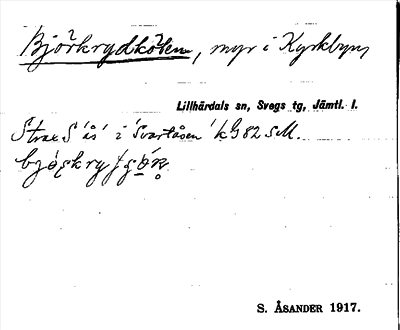 Björkrydkölen, myr i Kyrkbyn,
Lillhärdals sn, Svegs tg, Jämtl. l.
Strax S 'ås' i 'Svartåsen' k G 82 SM.
S. ÅSANDER 1917.